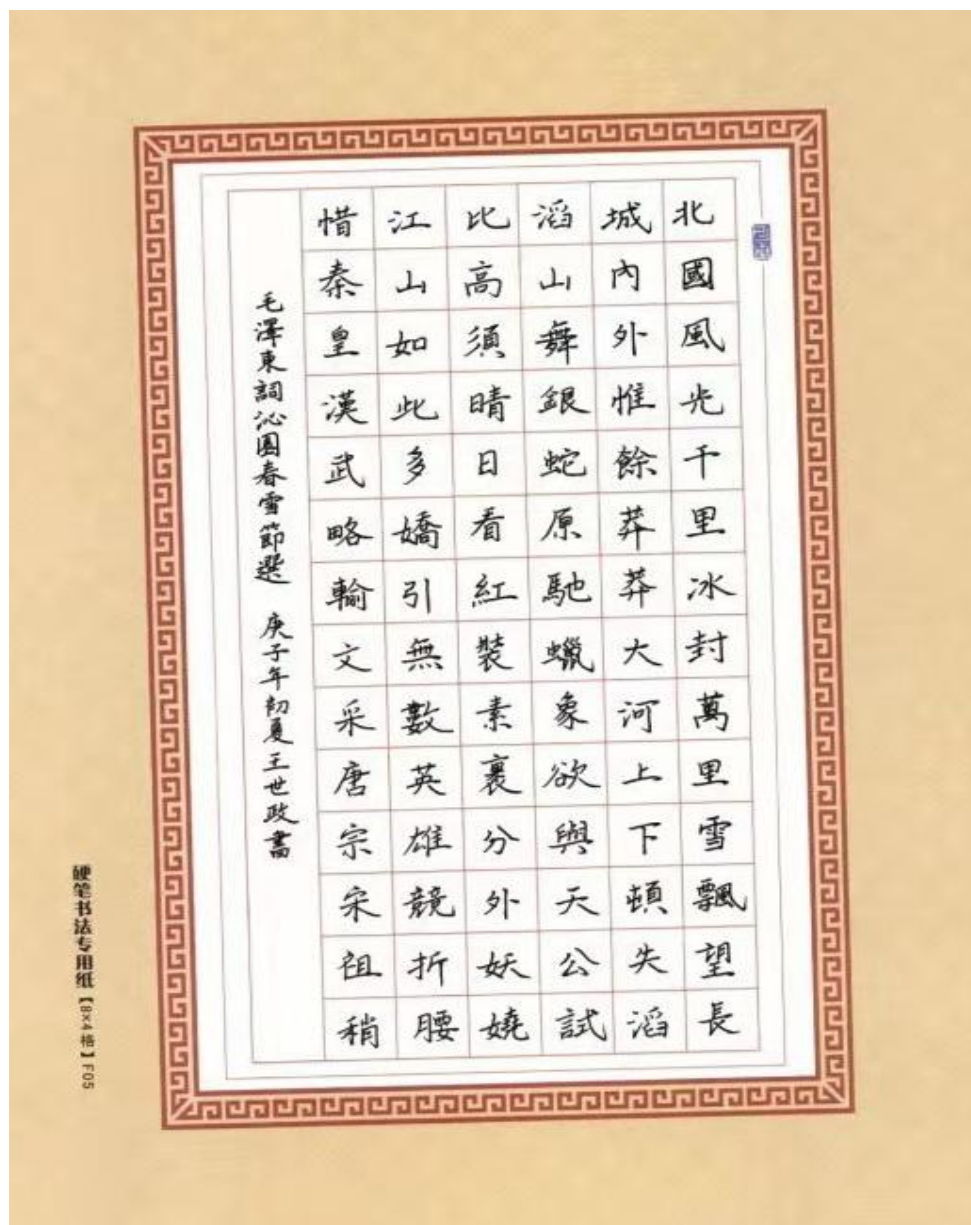 北國風光千里冰封萬里雪飄望長
城內外惟餘莽莽大河上下頓失滔
滔山舞銀蛇原馳蠟象欲與天公試
比高須晴日看紅裝素裹分外妖嬈
江山如此多嬌引無數英雄競折腰
惜秦皇漢武略輸文采唐宗宋祖稍
毛澤東詞沁園春雪節選 庚子年初夏王世政書
硬笔书法专用纸【8×4格】F05